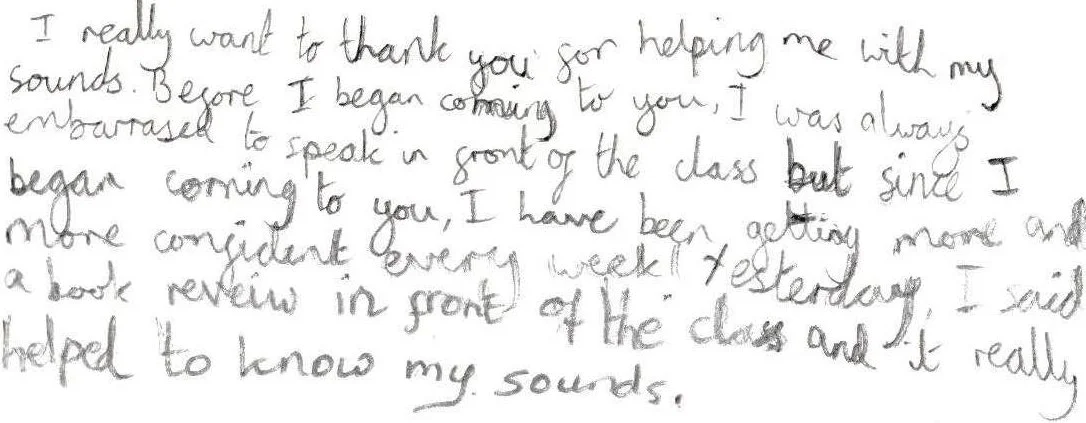 I really want to thank you for helping me with my
sounds. Before I began coming to you, I was always
embarrased to speak in front of the class but since I
began coming to you, I have been getting more and
more confident every week! Yesterday, I said
a book reveiw in front of the class and it really
helped to know my sounds.